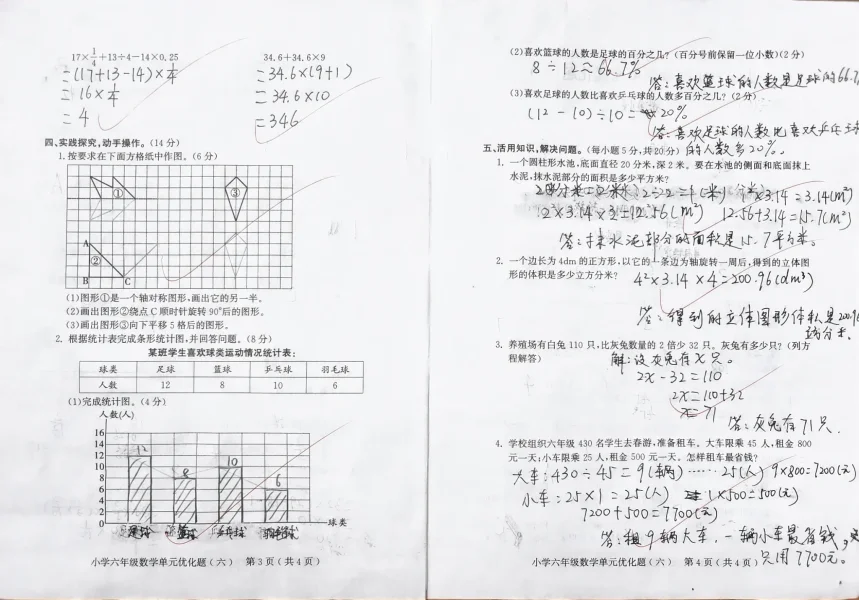 17×1/4+13÷4-14×0.25
=(17+13-14)×1/4
=16×1/4
=4
34.6+34.6×9
=34.6×(9+1)
=34.6×10
=346
四、实践探究,动手操作。(14分)
1.按要求在下面方格纸中作图。(6分)
①
③
A
②
B
C
(1)图形①是一个轴对称图形,画出它的另一半。
(2)画出图形②绕点C顺时针旋转90°后的图形。
(3)画出图形③向下平移5格后的图形。
2.根据统计表完成条形统计图,并回答问题。(8分)
某班学生喜欢球类运动情况统计表:
球类 足球 篮球 乒乓球 羽毛球
人数 12 8 10 6
(1)完成统计图。(4分)
人数(人)
16
14
12
10
8
6
4
2
0
12
8
10
6
足球 篮球 乒乓球 羽毛球
球类
小学六年级数学单元优化题(六) 第3页(共4页)
(2)喜欢篮球的人数是足球的百分之几?(百分号前保留一位小数)(2分)
8÷12≈66.7%
答:喜欢篮球的人数是足球的66.7
(3)喜欢足球的人数比喜欢乒乓球的人数多百分之几?(2分)
(12-10)÷10=20%
答:喜欢足球的人数比喜欢乒乓球
的人数多20%。
五、活用知识,解决问题。(每小题5分,共20分)
1.一个圆柱形水池,底面直径20分米,深2米。要在水池的侧面和底面抹上
水泥,抹水泥部分的面积是多少平方米?
20分米=2(米) 2÷2=1(米) ×3.14=3.14(m²)
2×3.14×2=12.56(m²) 12.56+3.14=15.7(m²)
答:抹水泥部分的面积是15.7平方米。
2.一个边长为4dm的正方形,以它的一条边为轴旋转一周后,得到的立体图
形的体积是多少立方分米?
4²×3.14×4=200.96(dm³)
答:得到的立体图形体积是200.96
3.养殖场有白兔110只,比灰兔数量的2倍少32只。灰兔有多少只?(列方
程解答)
解:设灰兔有x只。
2x-32=110
2x=110+32
x=71
答:灰兔有71只.
4.学校组织六年级430名学生去春游,准备租车。大车限乘45人,租金800
元一天;小车限乘25人,租金500元一天。怎样租车最省钱?
大车:430÷45=9(辆)……25(人) 9×800=7200(元)
小车:25×1=25(人) 1×500=500(元)
7200+500=7700(元)
答:租9辆大车,一辆小车最省钱,
只用7700元。
小学六年级数学单元优化题(六) 第4页(共4页)